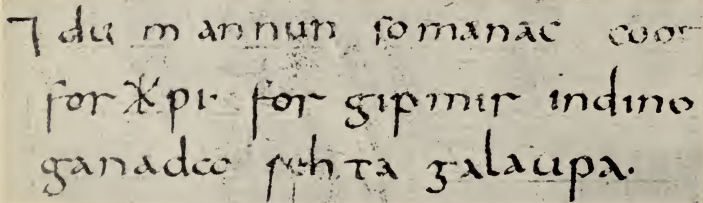 ⁊ du mannun so manac coot
for✱pi· for gipmir indino
ganada rehta galaupa·